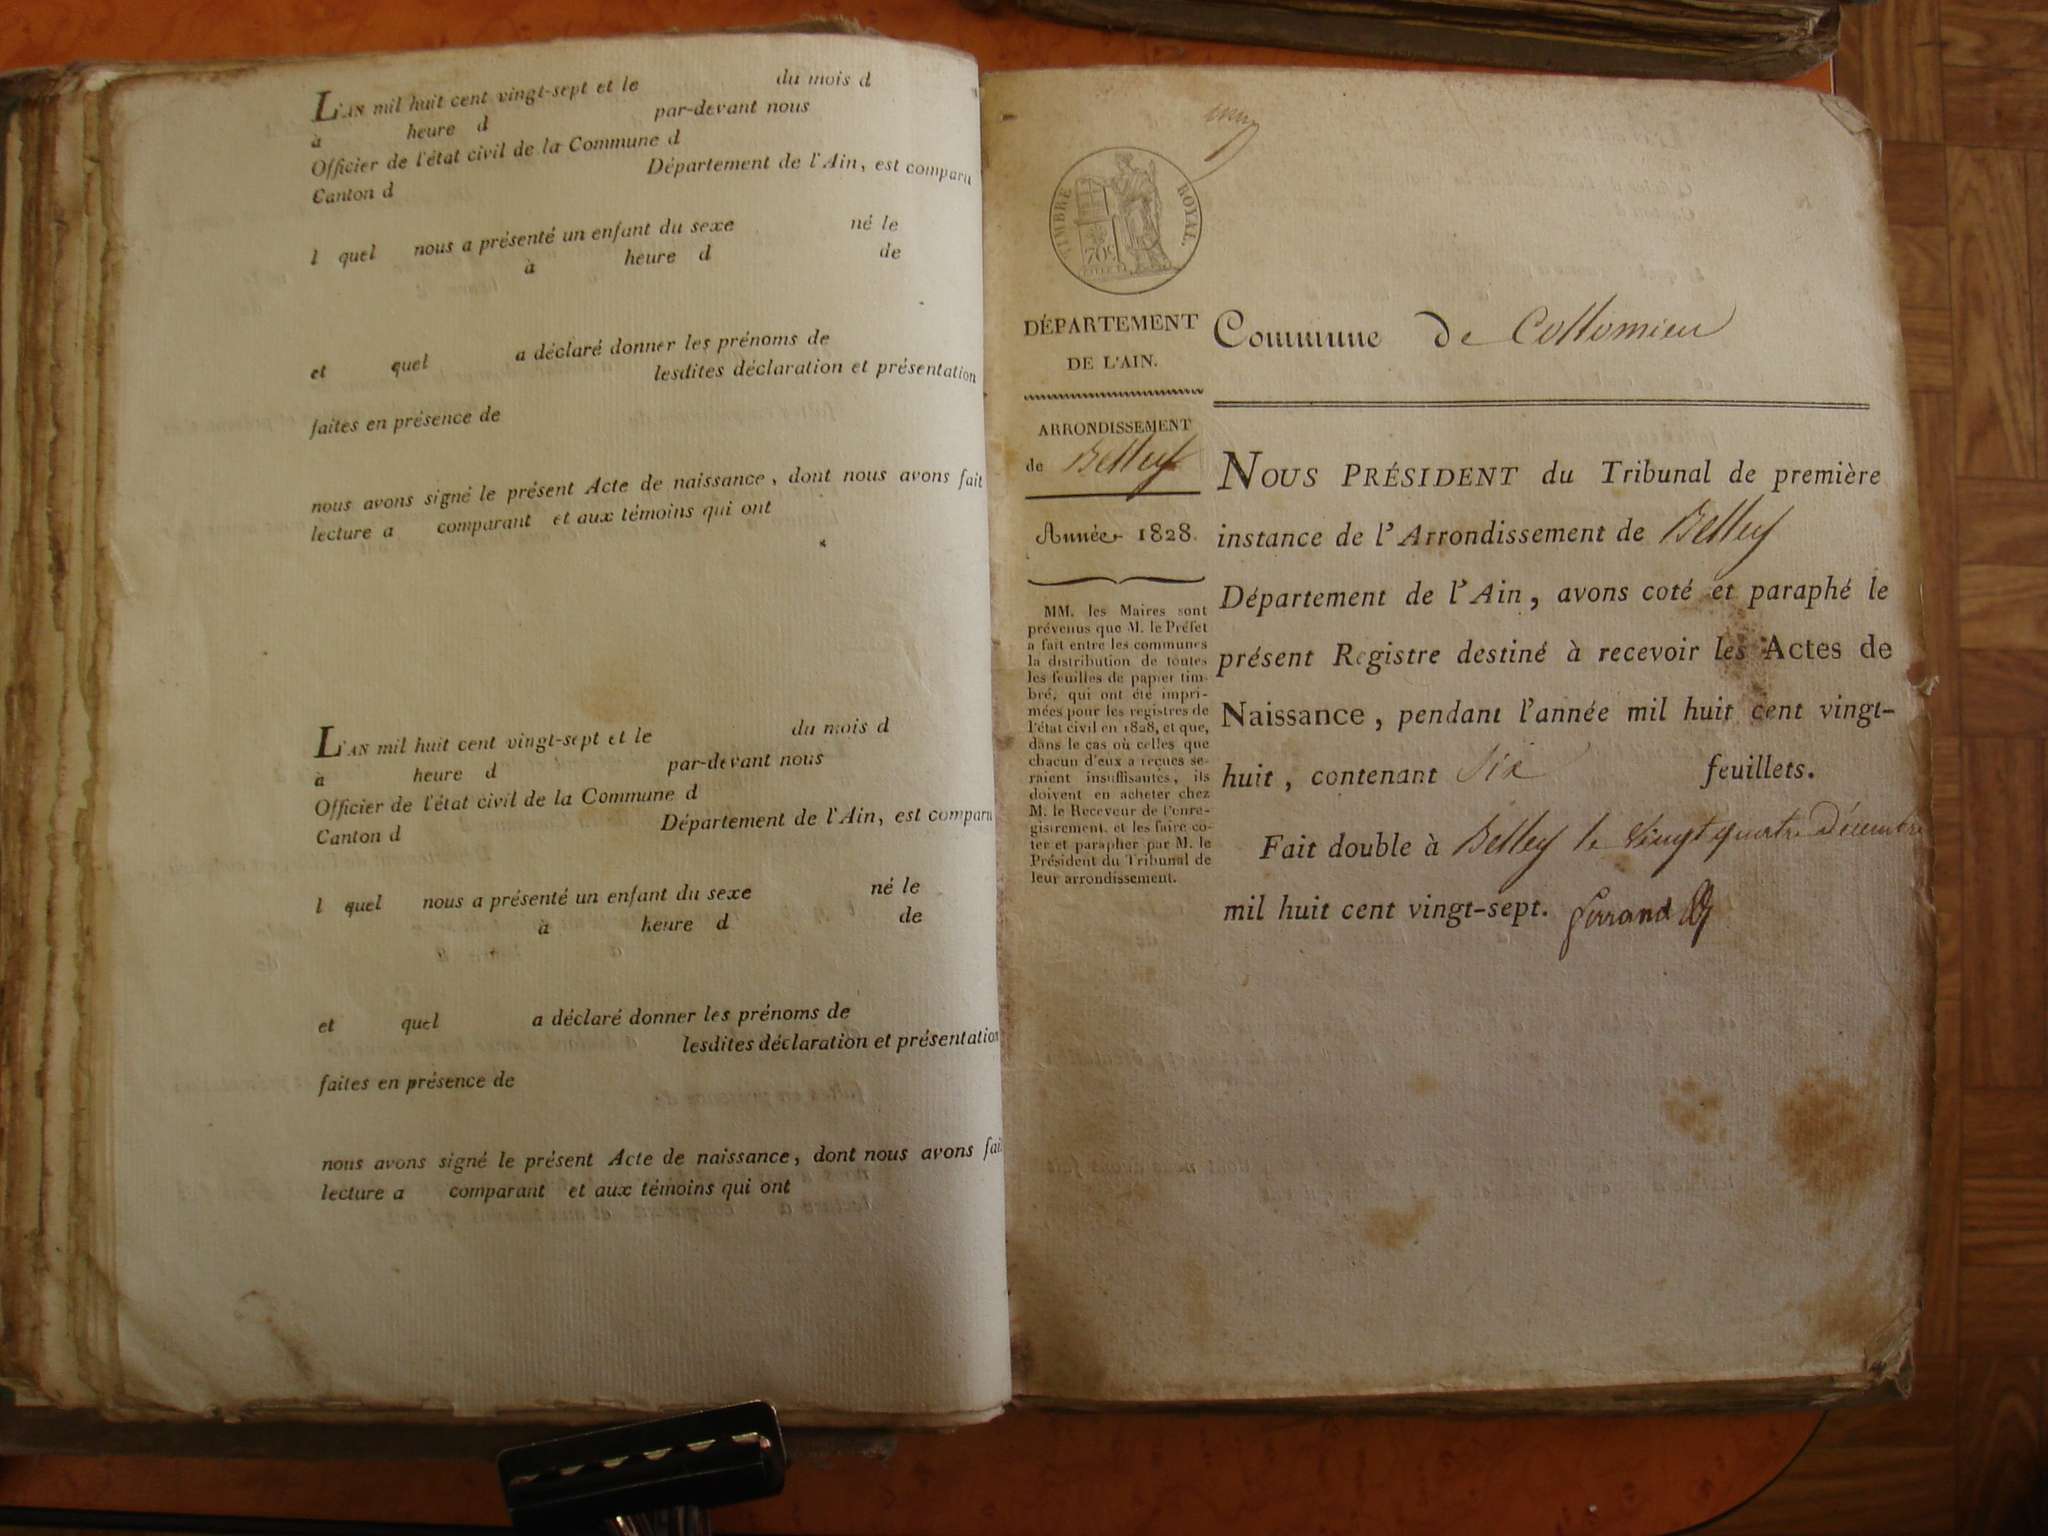 L'AN mil huit cent vingt-sept et le du mois d
à heure d par-devant nous
Officier de l'état civil de la Commune d
Canton d Département de l'Ain, est comparu
l quel nous a présenté un enfant du sexe né le
à heure d de
et quel a déclaré donner les prénoms de
lesdites déclaration et présentation
faites en présence de
nous avons signé le présent Acte de naissance, dont nous avons fait
lecture a comparant et aux témoins qui ont
L'AN mil huit cent vingt-sept et le du mois d
à heure d par-devant nous
Officier de l'état civil de la Commune d
Canton d Département de l'Ain, est comparu
l quel nous a présenté un enfant du sexe né le
à heure d de
et quel a déclaré donner les prénoms de
lesdites déclaration et présentation
faites en présence de
nous avons signé le présent Acte de naissance, dont nous avons fai
lecture a comparant et aux témoins qui ont
TIMBRE ROYAL.
70c
DÉPARTEMENT
DE L'AIN.
ARRONDISSEMENT
de Belley
Année 1828.
MM. les Maires sont
prévenus que M. le Préfet
a fait entre les communes
la distribution de toutes
les feuilles de papier tim-
bré, qui ont été impri-
mées pour les registres de
l'état civil en 1828, et que,
dans le cas où celles que
chacun d'eux a reçues se-
raient insuffisantes, ils
doivent en acheter chez
M. le Receveur de l'enre-
gistrement, et les faire co-
ter et parapher par M. le
Président du Tribunal de
leur arrondissement.
Commune de Collomieu
NOUS PRÉSIDENT du Tribunal de première
instance de l'Arrondissement de Belley
Département de l'Ain, avons coté et paraphé le
présent Registre destiné à recevoir les Actes de
Naissance, pendant l'année mil huit cent vingt-
huit, contenant Six feuillets.
Fait double à Belley le vingt quatre Décembre
mil huit cent vingt-sept.